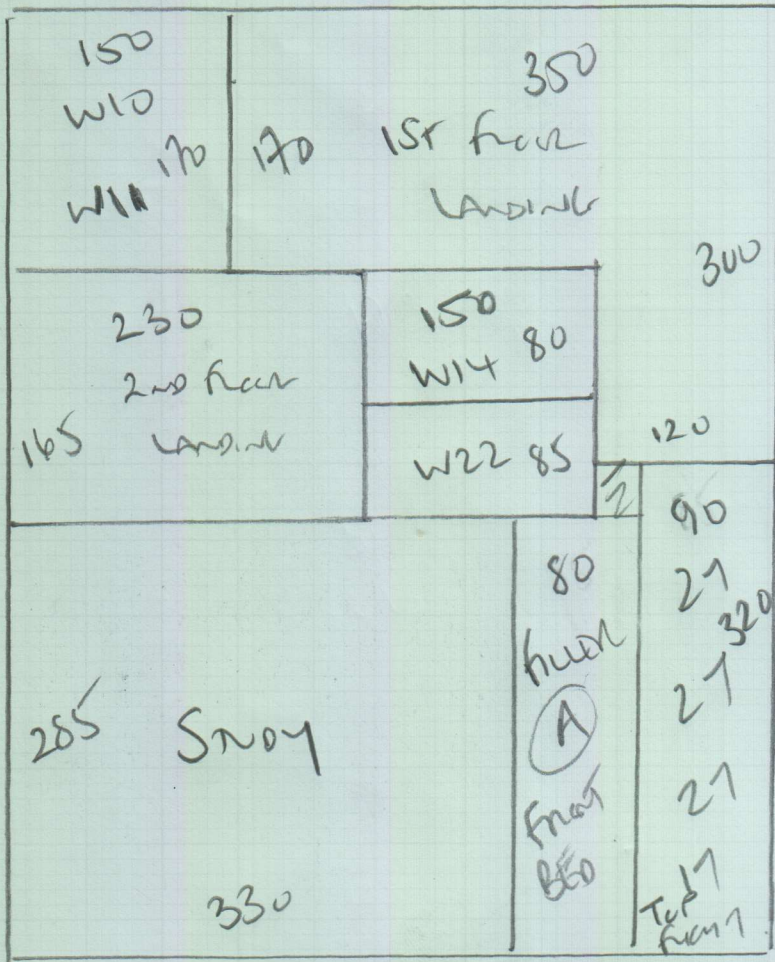 150
W10
W11 170
170
350
1ST FLOOR
LANDING
300
120
230
2ND FLOOR
LANDING
165
150
W14 80
W22 85
285
STUDY
330
80
FILLER
A
FRONT
BED
90
21
320
21
21
17
TOP